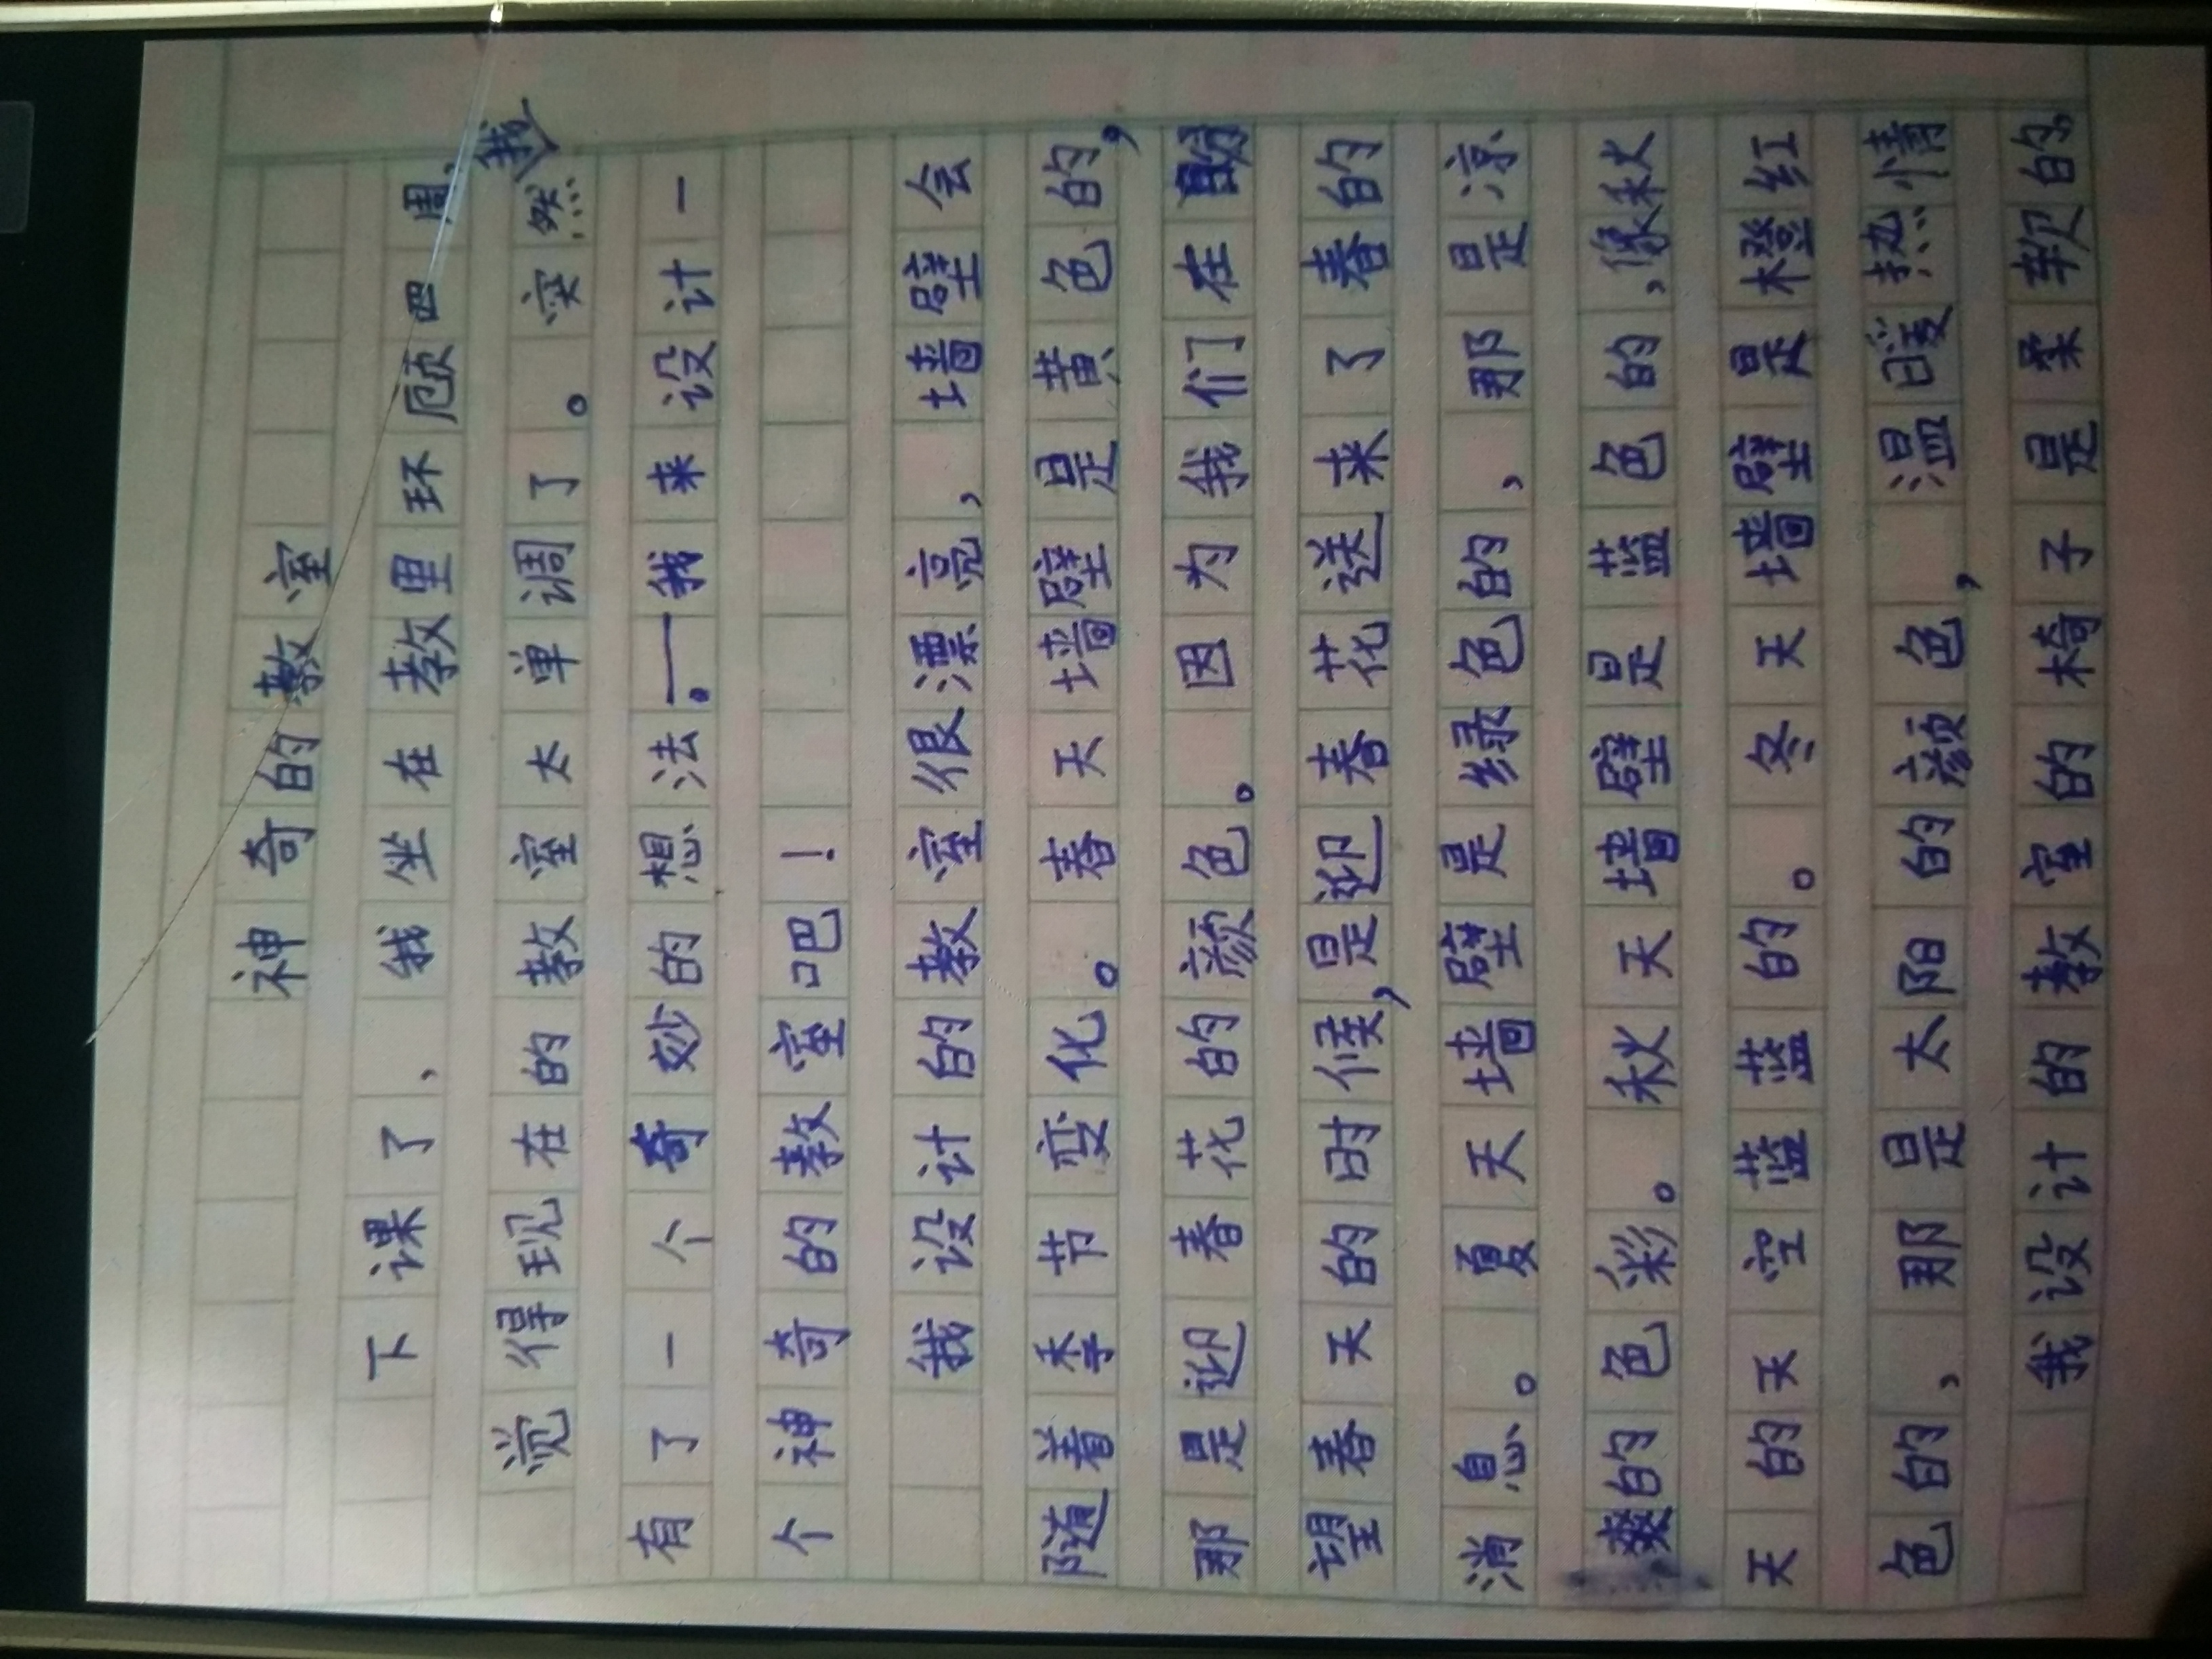 神奇的教室
下课了,我坐在教里环顾四周,
觉得现在的教室太单调了。突然我
有了一个奇妙的想法。——我来设计一
个神奇的教室吧!
我设计的教室很漂亮,墙壁会
随着季节变化。春天墙壁是黄色的,
那是迎春花的颜色。因为我们在盼
望春天的时候,是迎春花送来了春的
消息。夏天墙壁是绿色的,那是凉
爽的色彩。秋天墙壁是蓝色的,像秋
天的天空蓝蓝的。冬天墙壁是橙红
色的,那是太阳的颜色,温暖热情
我设计的教室的椅子是柔软的,